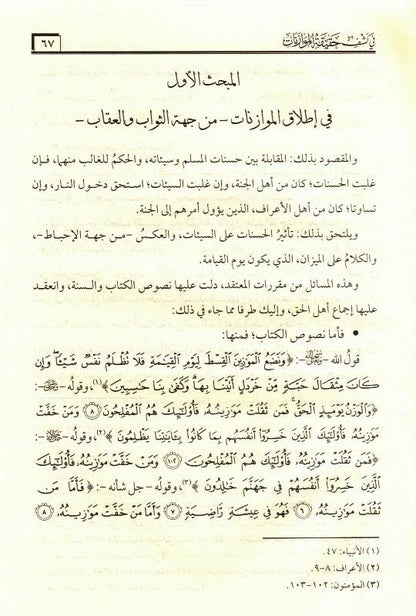 في كشف حقيقة الموازنات
٦٧
المبحث الأول
في إطلاق الموازنات - من جهة الثواب والعقاب -
والمقصود بذلك: المقابلة بين حسنات المسلم وسيئاته، والحكمُ للغالب منهما، فإن
غلبت الحسنات؛ كان من أهل الجنة، وإن غلبت السيئات؛ استحق دخول النار، وإن
تساوتا؛ كان من أهل الأعراف، الذين يؤول أمرهم إلى الجنة.
ويلتحق بذلك: تأثيرُ الحسنات على السيئات، والعكسُ -من جهة الإحباط-،
والكلامُ على الميزان، الذي يكون يوم القيامة.
وهذه المسائل من مقررات المعتقد، دلت عليها نصوص الكتاب والسنة، وانعقد
عليها إجماع أهل الحق، وإليك طرفا مما جاء في ذلك:
• فأما نصوص الكتاب؛ فمنها:
قولُ الله -ﷻ-: ﴿وَنَضَعُ الْمَوَازِينَ الْقِسْطَ لِيَوْمِ الْقِيَامَةِ فَلَا تُظْلَمُ نَفْسٌ شَيْئًا وَإِن
كَانَ مِثْقَالَ حَبَّةٍ مِّنْ خَرْدَلٍ أَتَيْنَا بِهَا وَكَفَىٰ بِنَا حَاسِبِينَ﴾(١)، وقولُه -ﷻ-:
﴿وَالْوَزْنُ يَوْمَئِذٍ الْحَقُّ فَمَن ثَقُلَتْ مَوَازِينُهُ فَأُولَٰئِكَ هُمُ الْمُفْلِحُونَ ۝٨ وَمَنْ خَفَّتْ
مَوَازِينُهُ فَأُولَٰئِكَ الَّذِينَ خَسِرُوا أَنفُسَهُم بِمَا كَانُوا بِآيَاتِنَا يَظْلِمُونَ﴾(٢)، وقولُه -ﷻ-:
﴿فَمَن ثَقُلَتْ مَوَازِينُهُ فَأُولَٰئِكَ هُمُ الْمُفْلِحُونَ ۝١٠٢ وَمَنْ خَفَّتْ مَوَازِينُهُ فَأُولَٰئِكَ
الَّذِينَ خَسِرُوا أَنفُسَهُمْ فِي جَهَنَّمَ خَالِدُونَ﴾(٣)، وقولُه -جل شأنه-: ﴿فَأَمَّا مَن
ثَقُلَتْ مَوَازِينُهُ ۝٦ فَهُوَ فِي عِيشَةٍ رَّاضِيَةٍ ۝٧ وَأَمَّا مَنْ خَفَّتْ مَوَازِينُهُ ۝٨
(١) الأنبياء: ٤٧.
(٢) الأعراف: ٨-٩.
(٣) المؤمنون: ١٠٢-١٠٣.